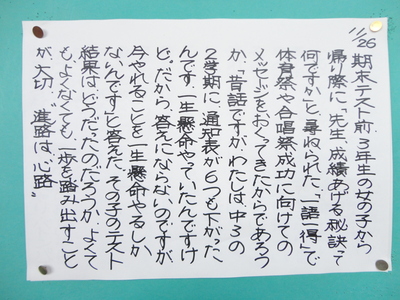 11/26
期末テスト前、3年生の女の子から
帰り際に、「先生、成績あげる秘訣って
何ですか」と尋ねられた。「一語一得」で
体育祭や合唱祭成功に向けての
メッセージをおくってきたからであろう
か。「昔話ですが、わたしは中3の
2学期に、通知表が6つも下がった
んです。一生懸命やっていたんですけ
ど。だから、答えにならないのですが、
今やれることを一生懸命やるしか
ないんです」と答えた。その子のテスト
結果はどうだったのだろうか。よくて
も、よくなくても、一歩を踏み出すこと
が大切。"進路は心路"